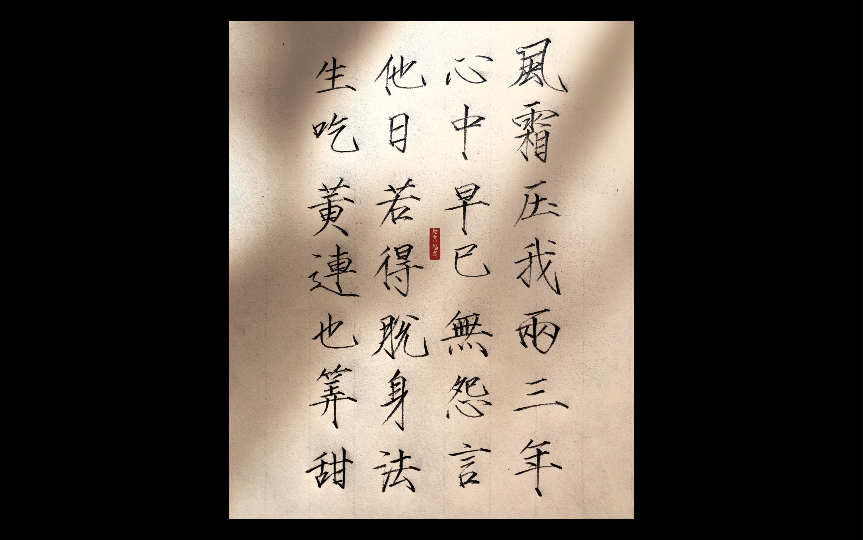 風霜压我兩三年
心中早已無怨言
他日若得脫身法
生吃黃連也筭甜